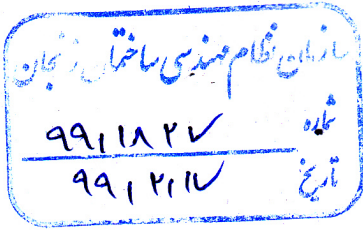 سازمان نظام مهندسی ساختمان زنجان
شماره ۹۹/۱۸۲۷
تاریخ ۹۹/۲/۱۷